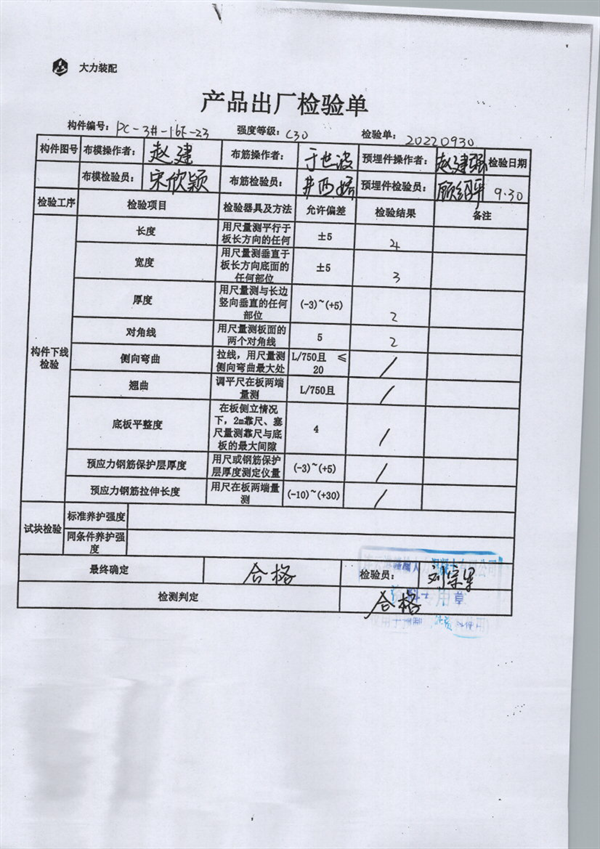 大力装配
产品出厂检验单
构件编号：PC-3#-16F-23 强度等级：C30 检验单：20220930
构件图号 布模操作者： 赵建 布筋操作者： 于世波 预埋件操作者： 赵建强 检验日期
布模检验员： 宋欣颖 布筋检验员： 预埋件检验员： 9:30
检验工序 检验项目 检验器具及方法 允许偏差 检验结果 备注
构件下线检验
长度 用尺量测平行于板长方向的任何 ±5 4
宽度 用尺量测垂直于板长方向底面的任何部位 ±5 3
厚度 用尺量测与长边竖向垂直的任何部位 (-3)~(+5) 2
对角线 用尺量测板面的两个对角线 5 2
侧向弯曲 拉线，用尺量测侧向弯曲最大处 L/750且 ≤20 /
翘曲 调平尺在板两端量测 L/750且 /
底板平整度 在板侧立情况下，2m靠尺、塞尺量测靠尺与底板的最大间隙 4 /
预应力钢筋保护层厚度 用尺或钢筋保护层厚度测定仪量 (-3)~(+5) /
预应力钢筋拉伸长度 用尺在板两端量测 (-10)~(+30) /
试块检验 标准养护强度
同条件养护强度
最终确定 合格 检验员：
检测判定 合格